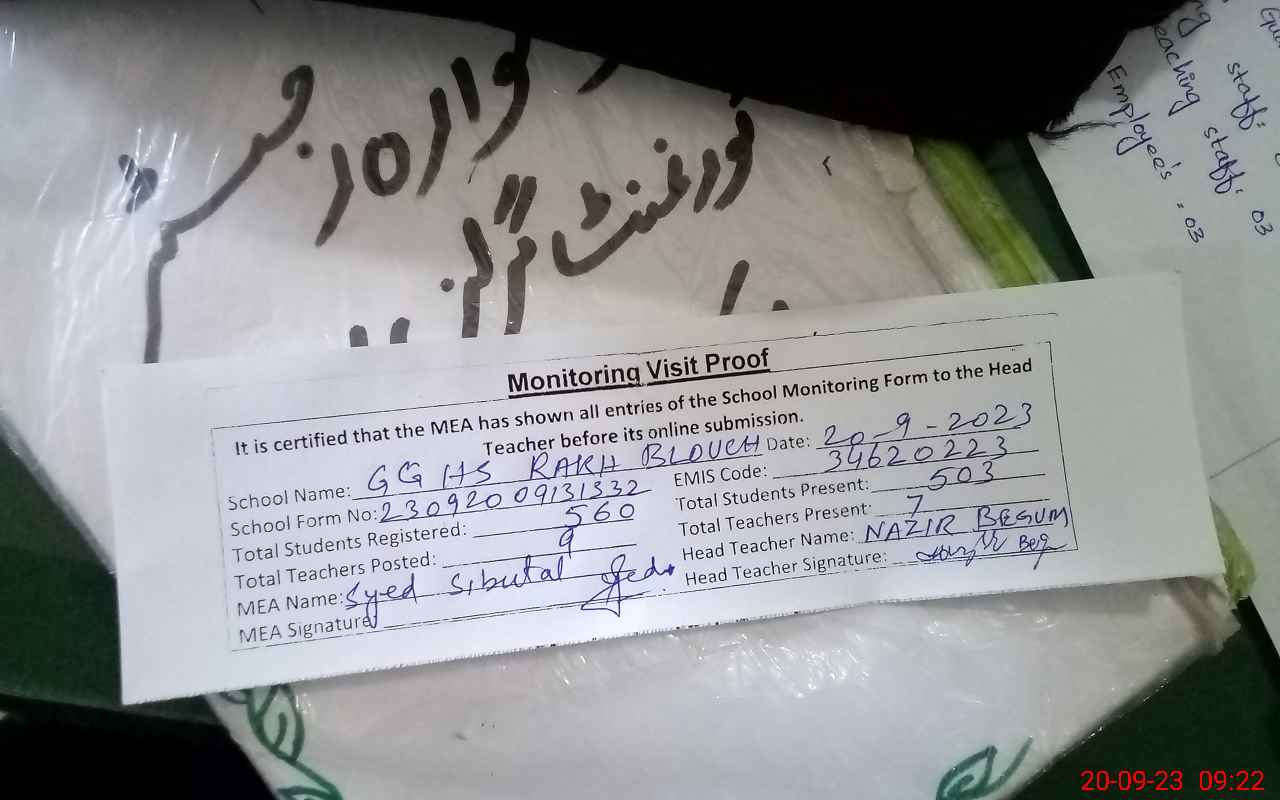 گورنمنٹ گرلز
staff:
teaching staff: 03
Employee's = 03
Monitoring Visit Proof
It is certified that the MEA has shown all entries of the School Monitoring Form to the Head
Teacher before its online submission.
School Name: GGHS RAKH BLOUCH Date: 20-9-2023
School Form No: 23092009131332 EMIS Code: 34620223
Total Students Registered: 560 Total Students Present: 503
Total Teachers Posted: 9 Total Teachers Present: 7
MEA Name: Syed Sibutal Head Teacher Name: NAZIR BEGUM
MEA Signature Head Teacher Signature:
20-09-23 09:22